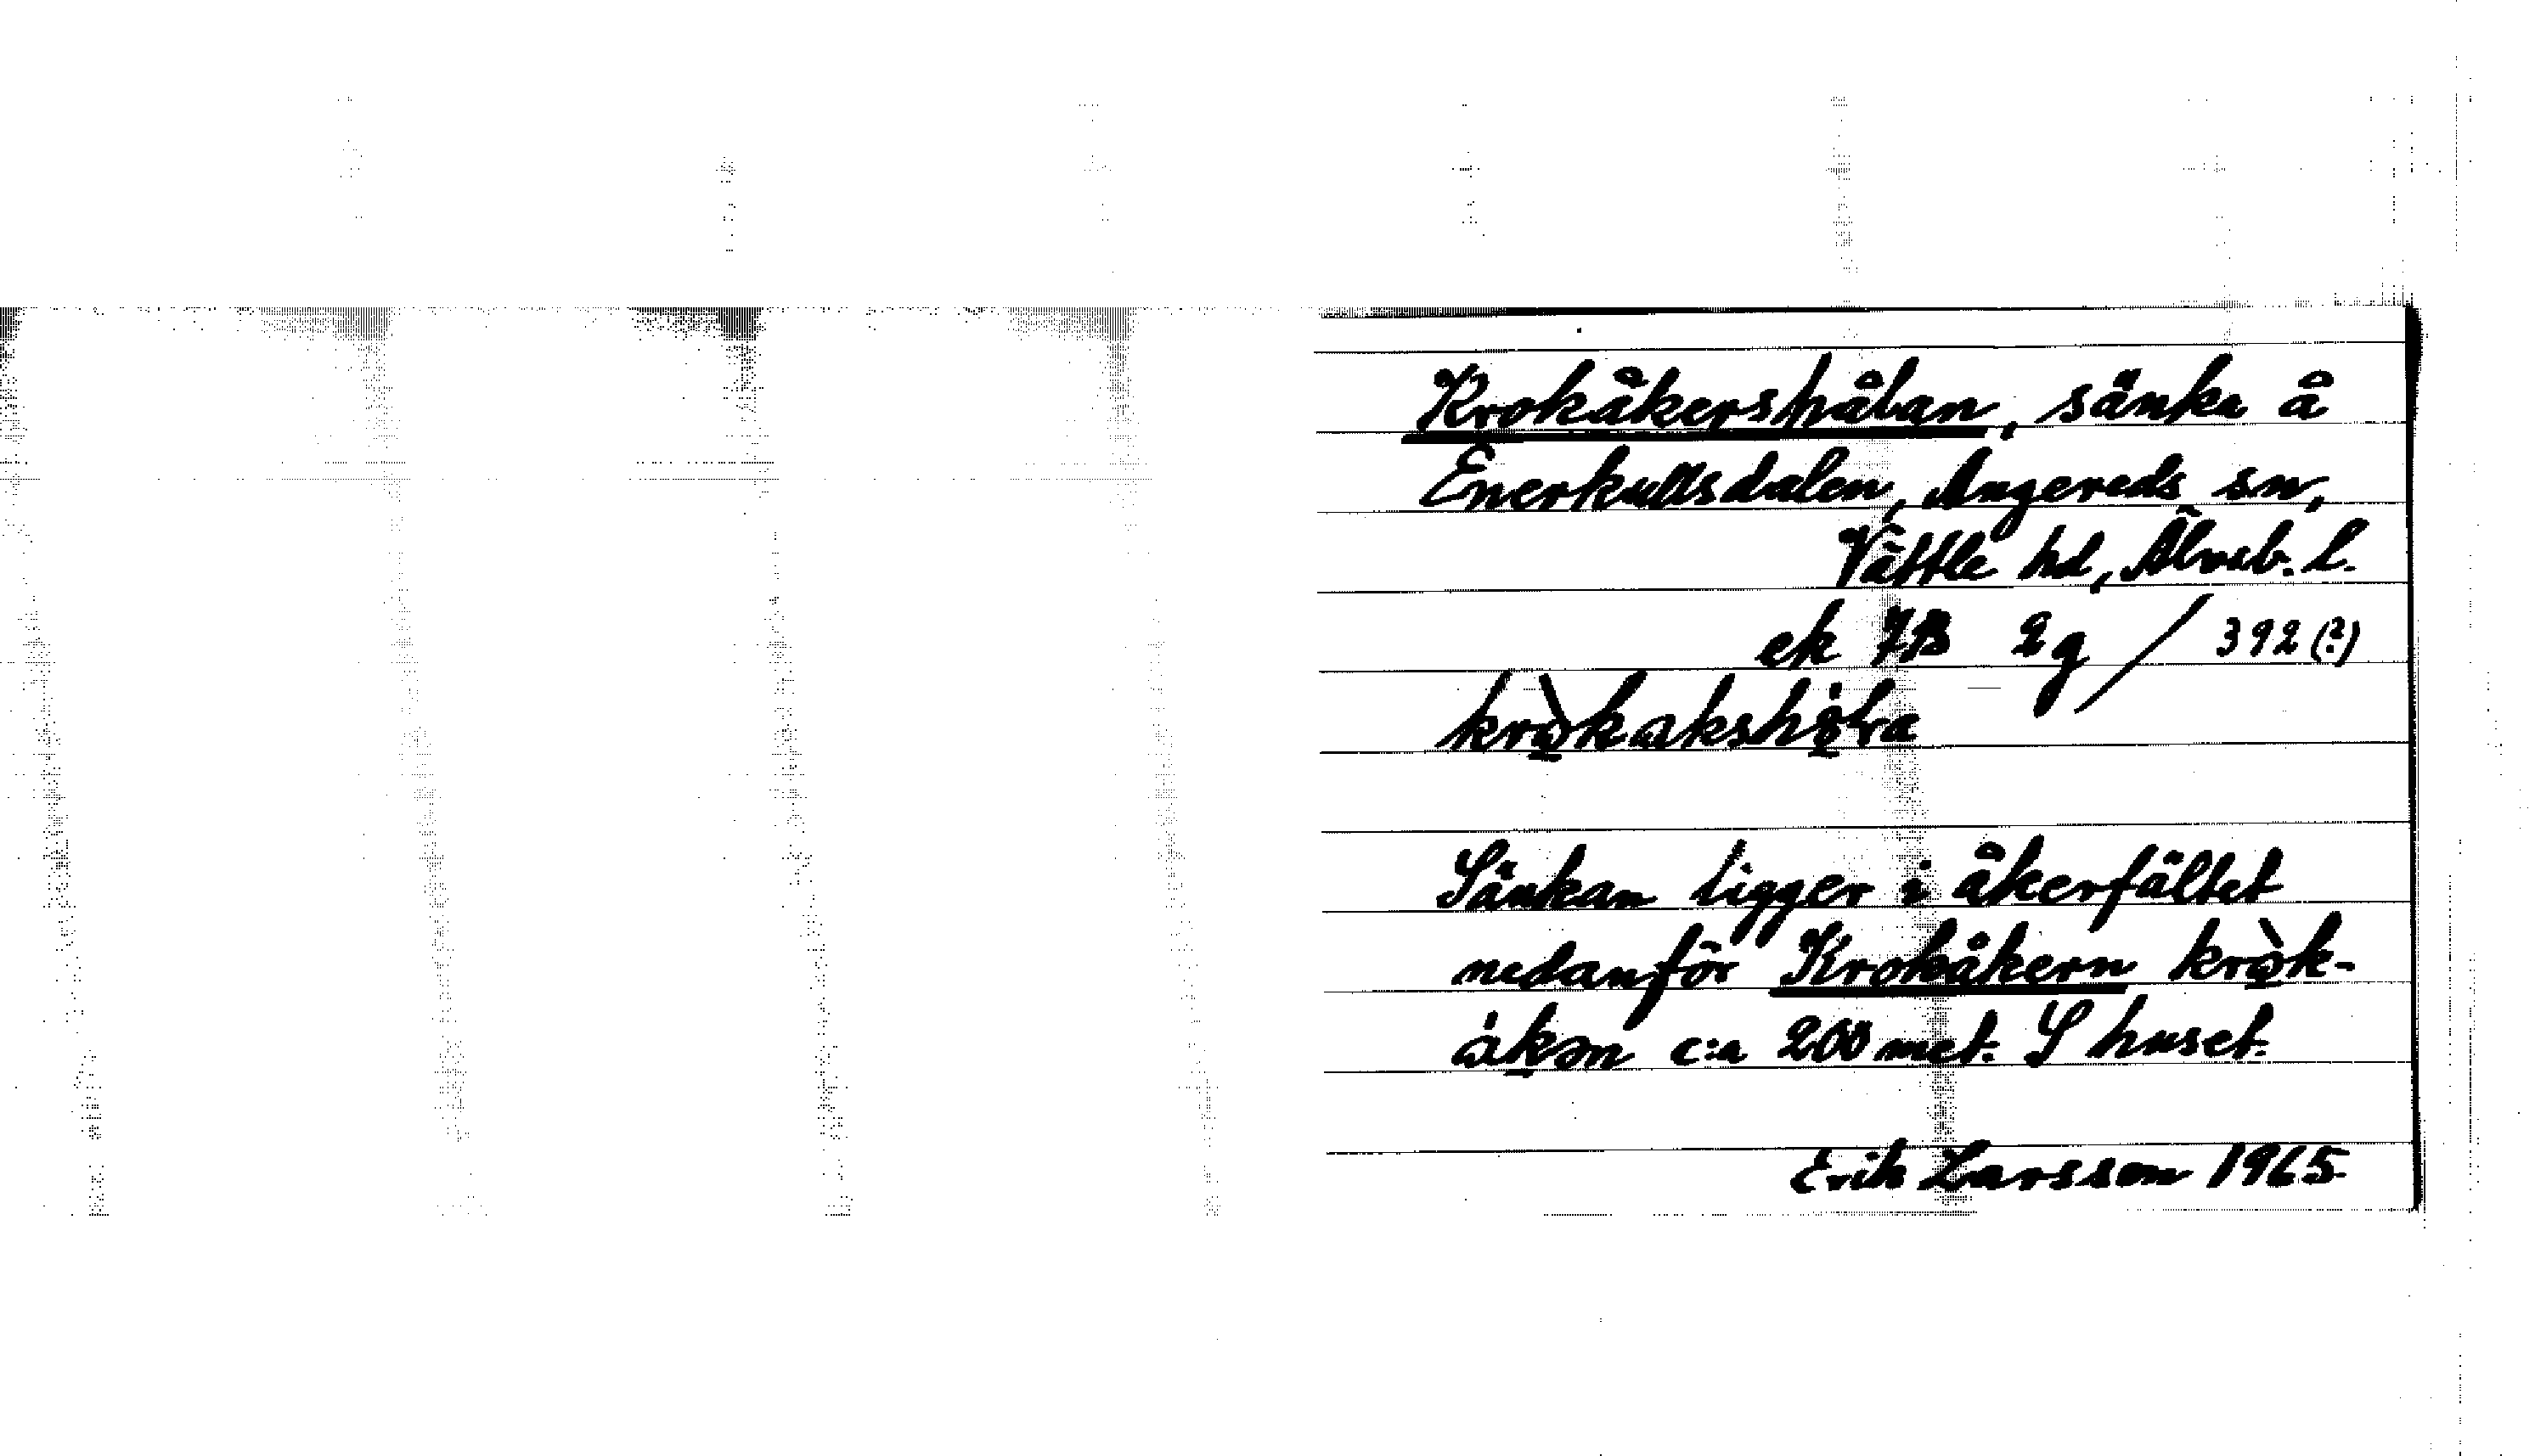 Krokåkershålan, sänka å
Enerkullsdalen, Angereds sn,
Vättle hd, Älvsb. l.
ek 7B 2g / 392 (?)
Sänkan ligger i åkerfältet
nedanför Krokåkern kròk-
c:a 200 met. S huset.
Erik Larsson 1965.